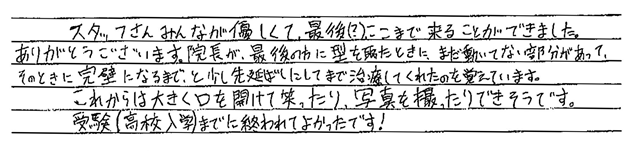 スタッフさんみんなが優しくて、最後(?)ここまで来ることができました。
ありがとうございます。院長が、最後の方に型を取たときに、まだ動いてない部分があって、
そのときに完壁になるまで、と少し先延ばしにしてまで治療してくれたのを覚えています。
これからは大きく口を開けて笑ったり、写真を撮ったりできそうです。
受験(高校入学)までに終われてよかったです!